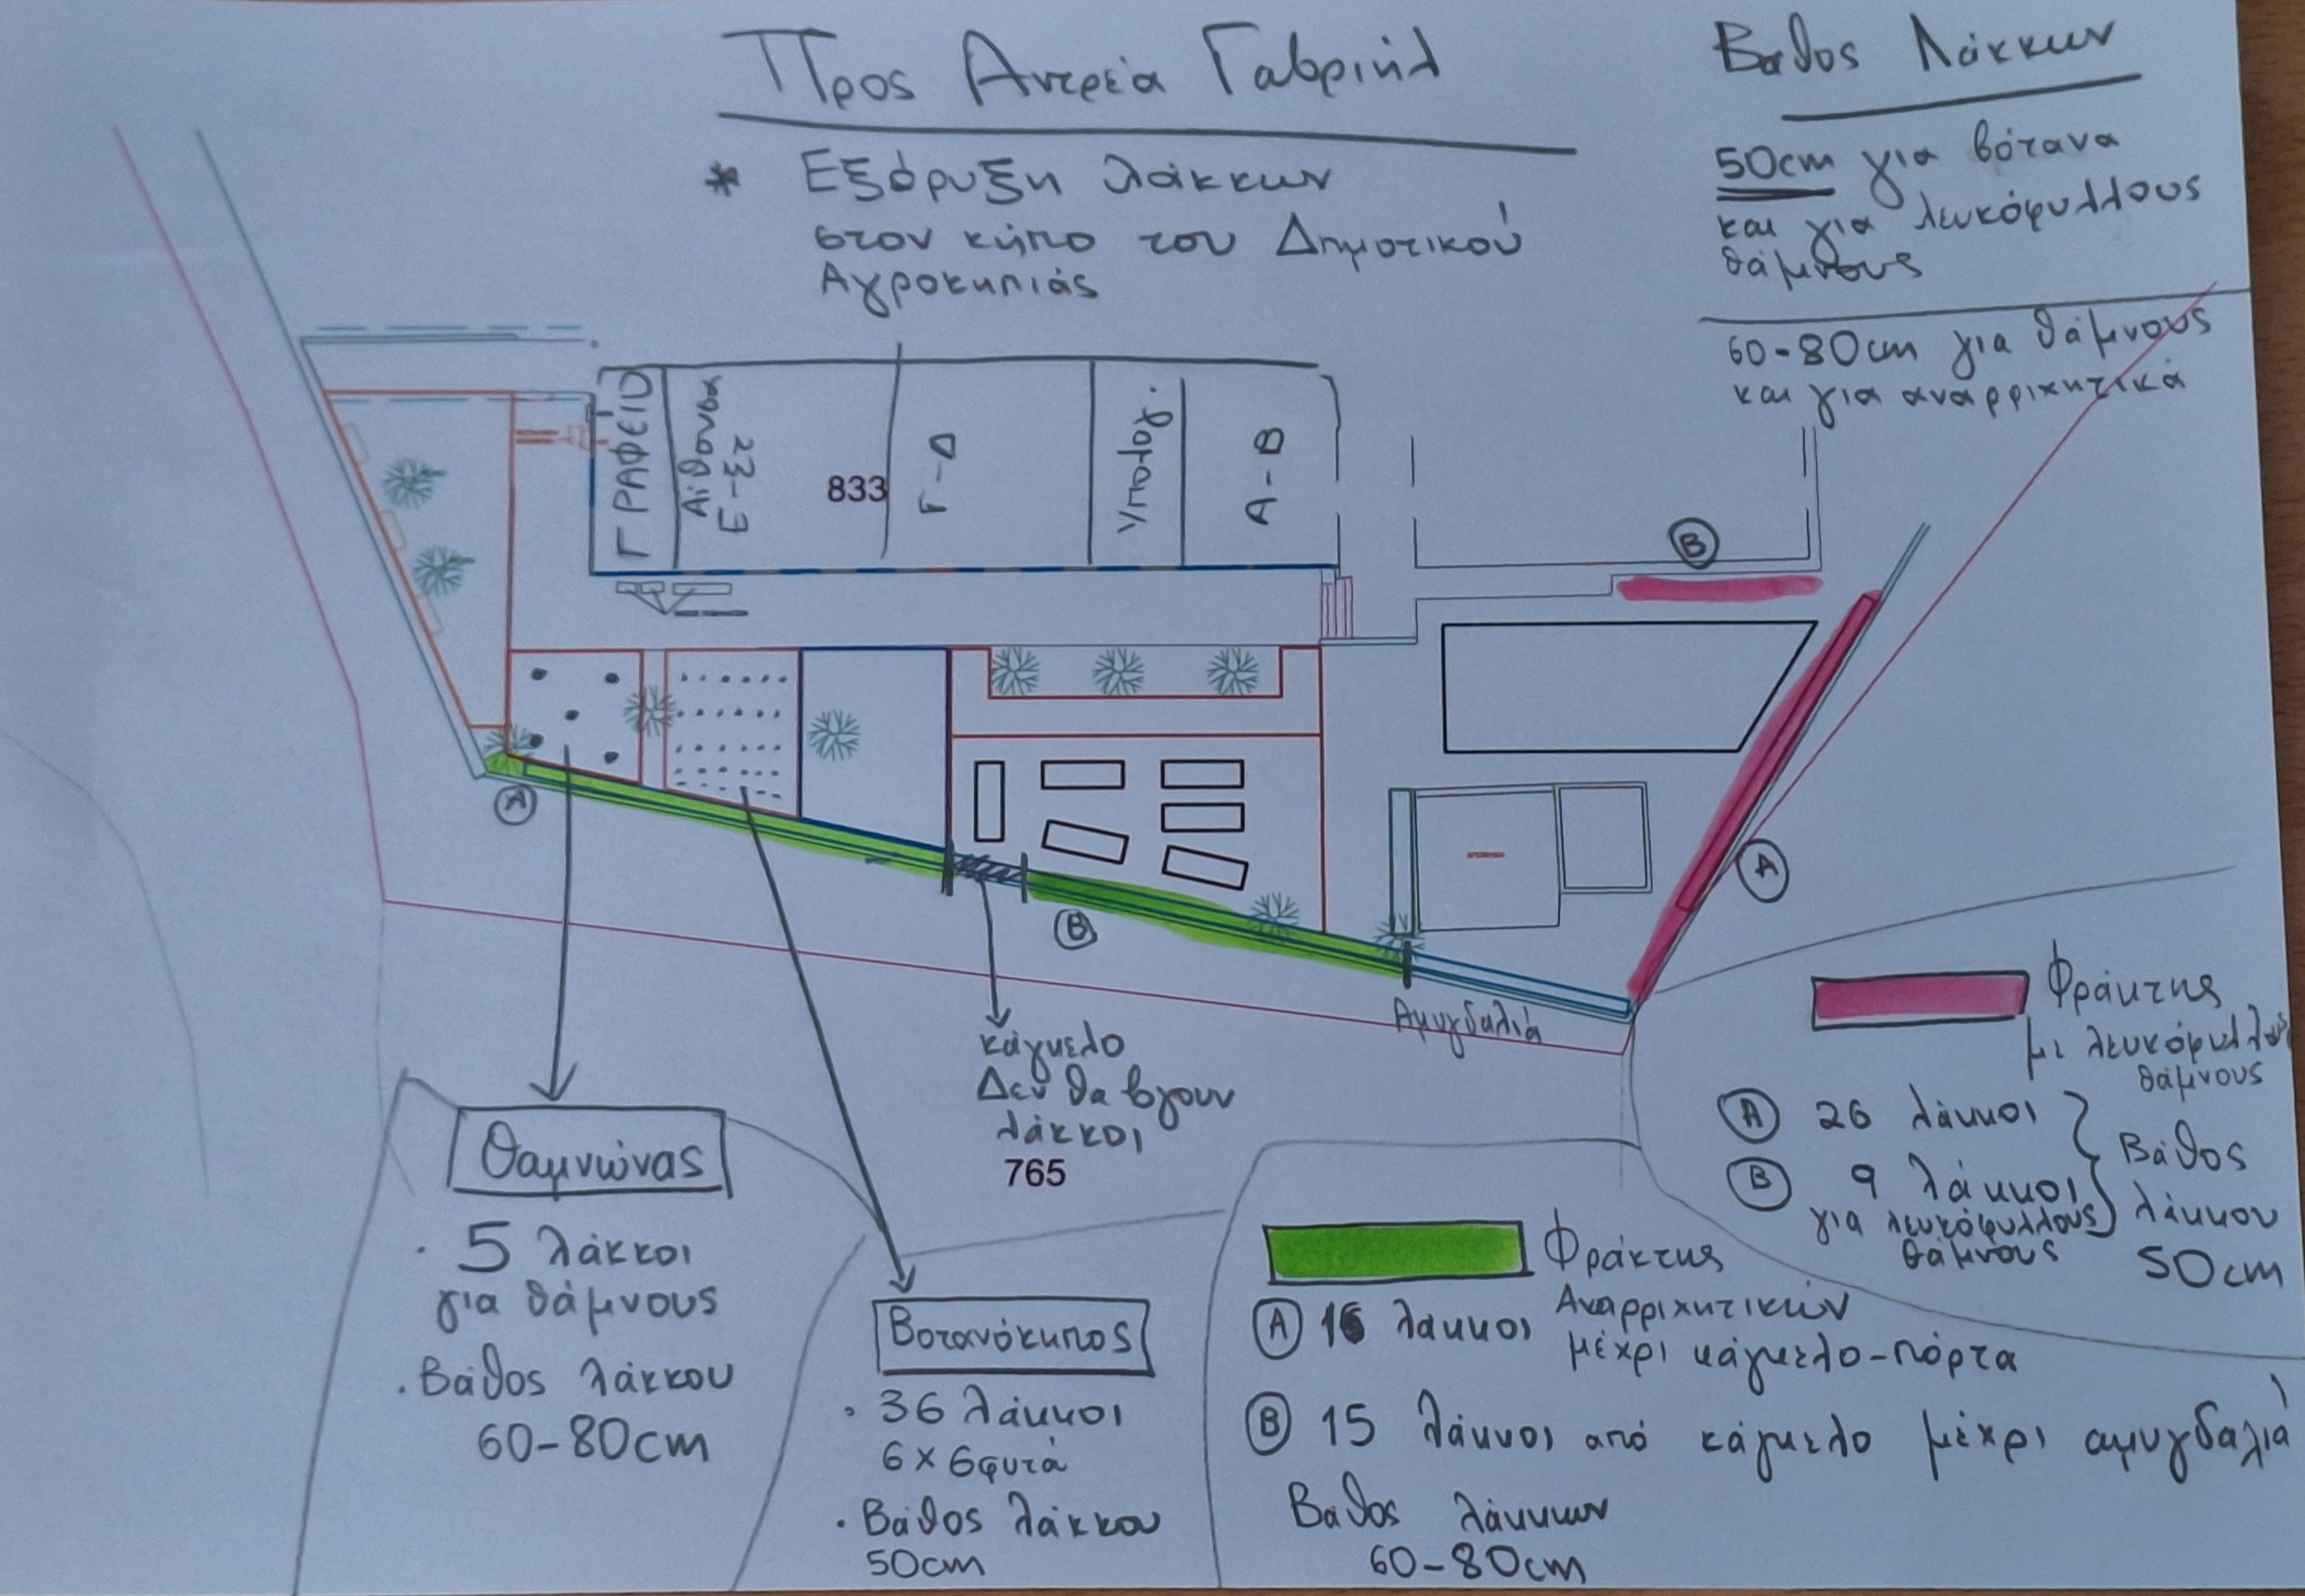 Προς Αντρέα Γαβριήλ
* Εξόρυξη λάκκων
στον κήπο του Δημοτικού
Αγροκηπιάς
Βάθος Λάκκων
50cm για βότανα
και για λευκόφυλλους
θάμνους
60-80cm για θάμνους
και για αναρριχητικά
ΓΡΑΦΕΙΟ
Αίθουσα
Ε-Στ
833
Γ-Δ
Υπολογ.
Α-Β
Β
Α
Β
Α
Αμυγδαλιά
κάγκελο
Δεν θα βγουν
λάκκοι
765
Θαμνώνας
· 5 λάκκοι
για θάμνους
· Βάθος λάκκου
60-80cm
Βοτανόκηπος
· 36 λάκκοι
6x6 φυτά
· Βάθος λάκκου
50cm
Φράκτης
Αναρριχητικών
Α 16 λάκκοι μέχρι κάγκελο-πόρτα
Β 15 λάκκοι από κάγκελο μέχρι αμυγδαλιά
Βάθος λάκκων
60-80cm
Φράκτης
με λευκόφυλλους
θάμνους
Α 26 λάκκοι
Β 9 λάκκοι
για λευκόφυλλους
θάμνους
Βάθος
λάκκου
50cm